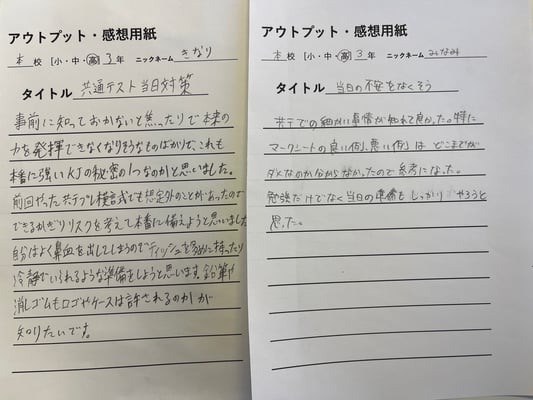 アウトプット・感想用紙
本 校 [小・中・高] 3年 ニックネーム きなり
タイトル 共通テスト当日対策
事前に知っておかないと焦ったりで本来の
力を発揮できなくなりそうなものばかりで、これも
本番に強いKJの秘密の1つなのかと思いました。
前回やった共テプレ模試でも想定外のことがあったので
できるかぎりリスクを考えて本番に備えようと思いました
自分はよく鼻血を出してしまうのでティッシュを多めに持ったり
冷静でいられるような準備をしようと思います。鉛筆や
消しゴムもロゴやケースは許されるのかが
知りたいです。
アウトプット・感想用紙
本 校 [小・中・高] 3年 ニックネーム みなみ
タイトル 当日の不安をなくそう
共テでの細かい事情が知れて良かった。特に
マークシートの良い例、悪い例は どこまでが
ダメなのか分からなかったので参考になった。
勉強だけでなく当日の準備も しっかり やろうと
思った。